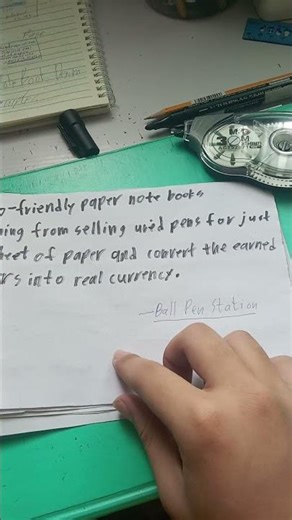 o-friendly paper note books
ing from selling used pens for just
heet of paper and convert the earned
rs into real currency.
—Ball Pen Station